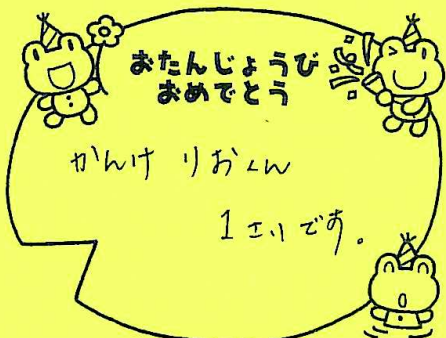 おたんじょうび
おめでとう
かんけ りおくん
1さいです。